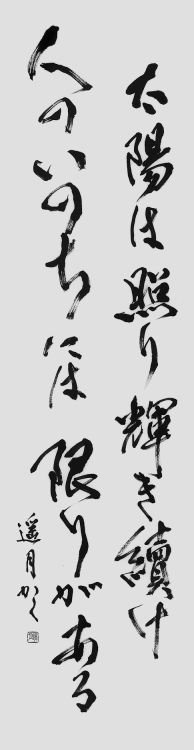 太陽は照り輝き續け
人のいのちには限りがある
遥月かく